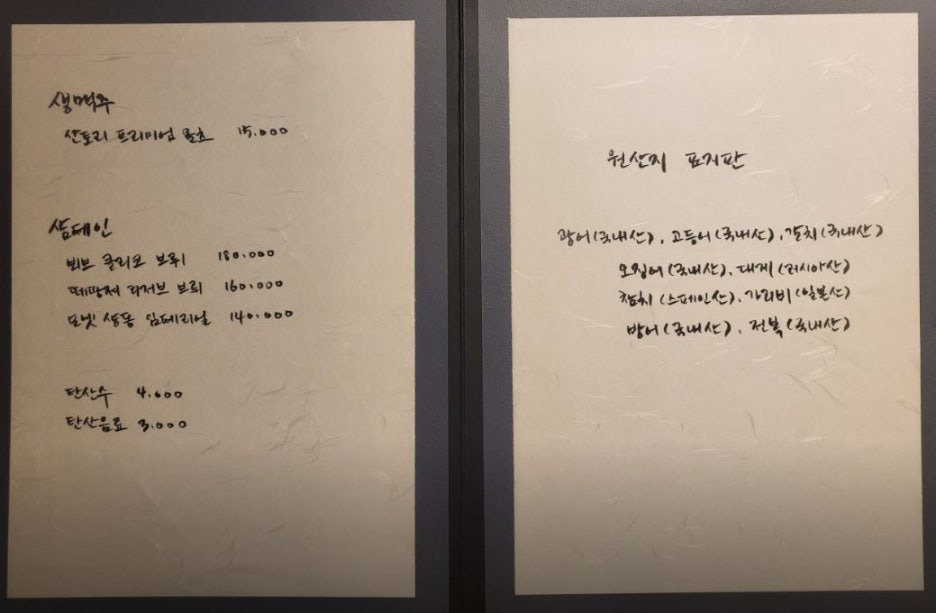 생맥주
산토리 프리미엄 몰츠 15.000
샴페인
뵈브 클리코 브뤼 180.000
떼땅져 리저브 브뤼 160.000
모엣 샹동 임페리얼 140.000
탄산수 4.000
탄산음료 3.000
원산지 표지판
광어(국내산), 고등어(국내산), 갈치(국내산)
오징어(국내산), 대게(러시아산)
참치(스페인산), 가리비(일본산)
방어(국내산), 전복(국내산)